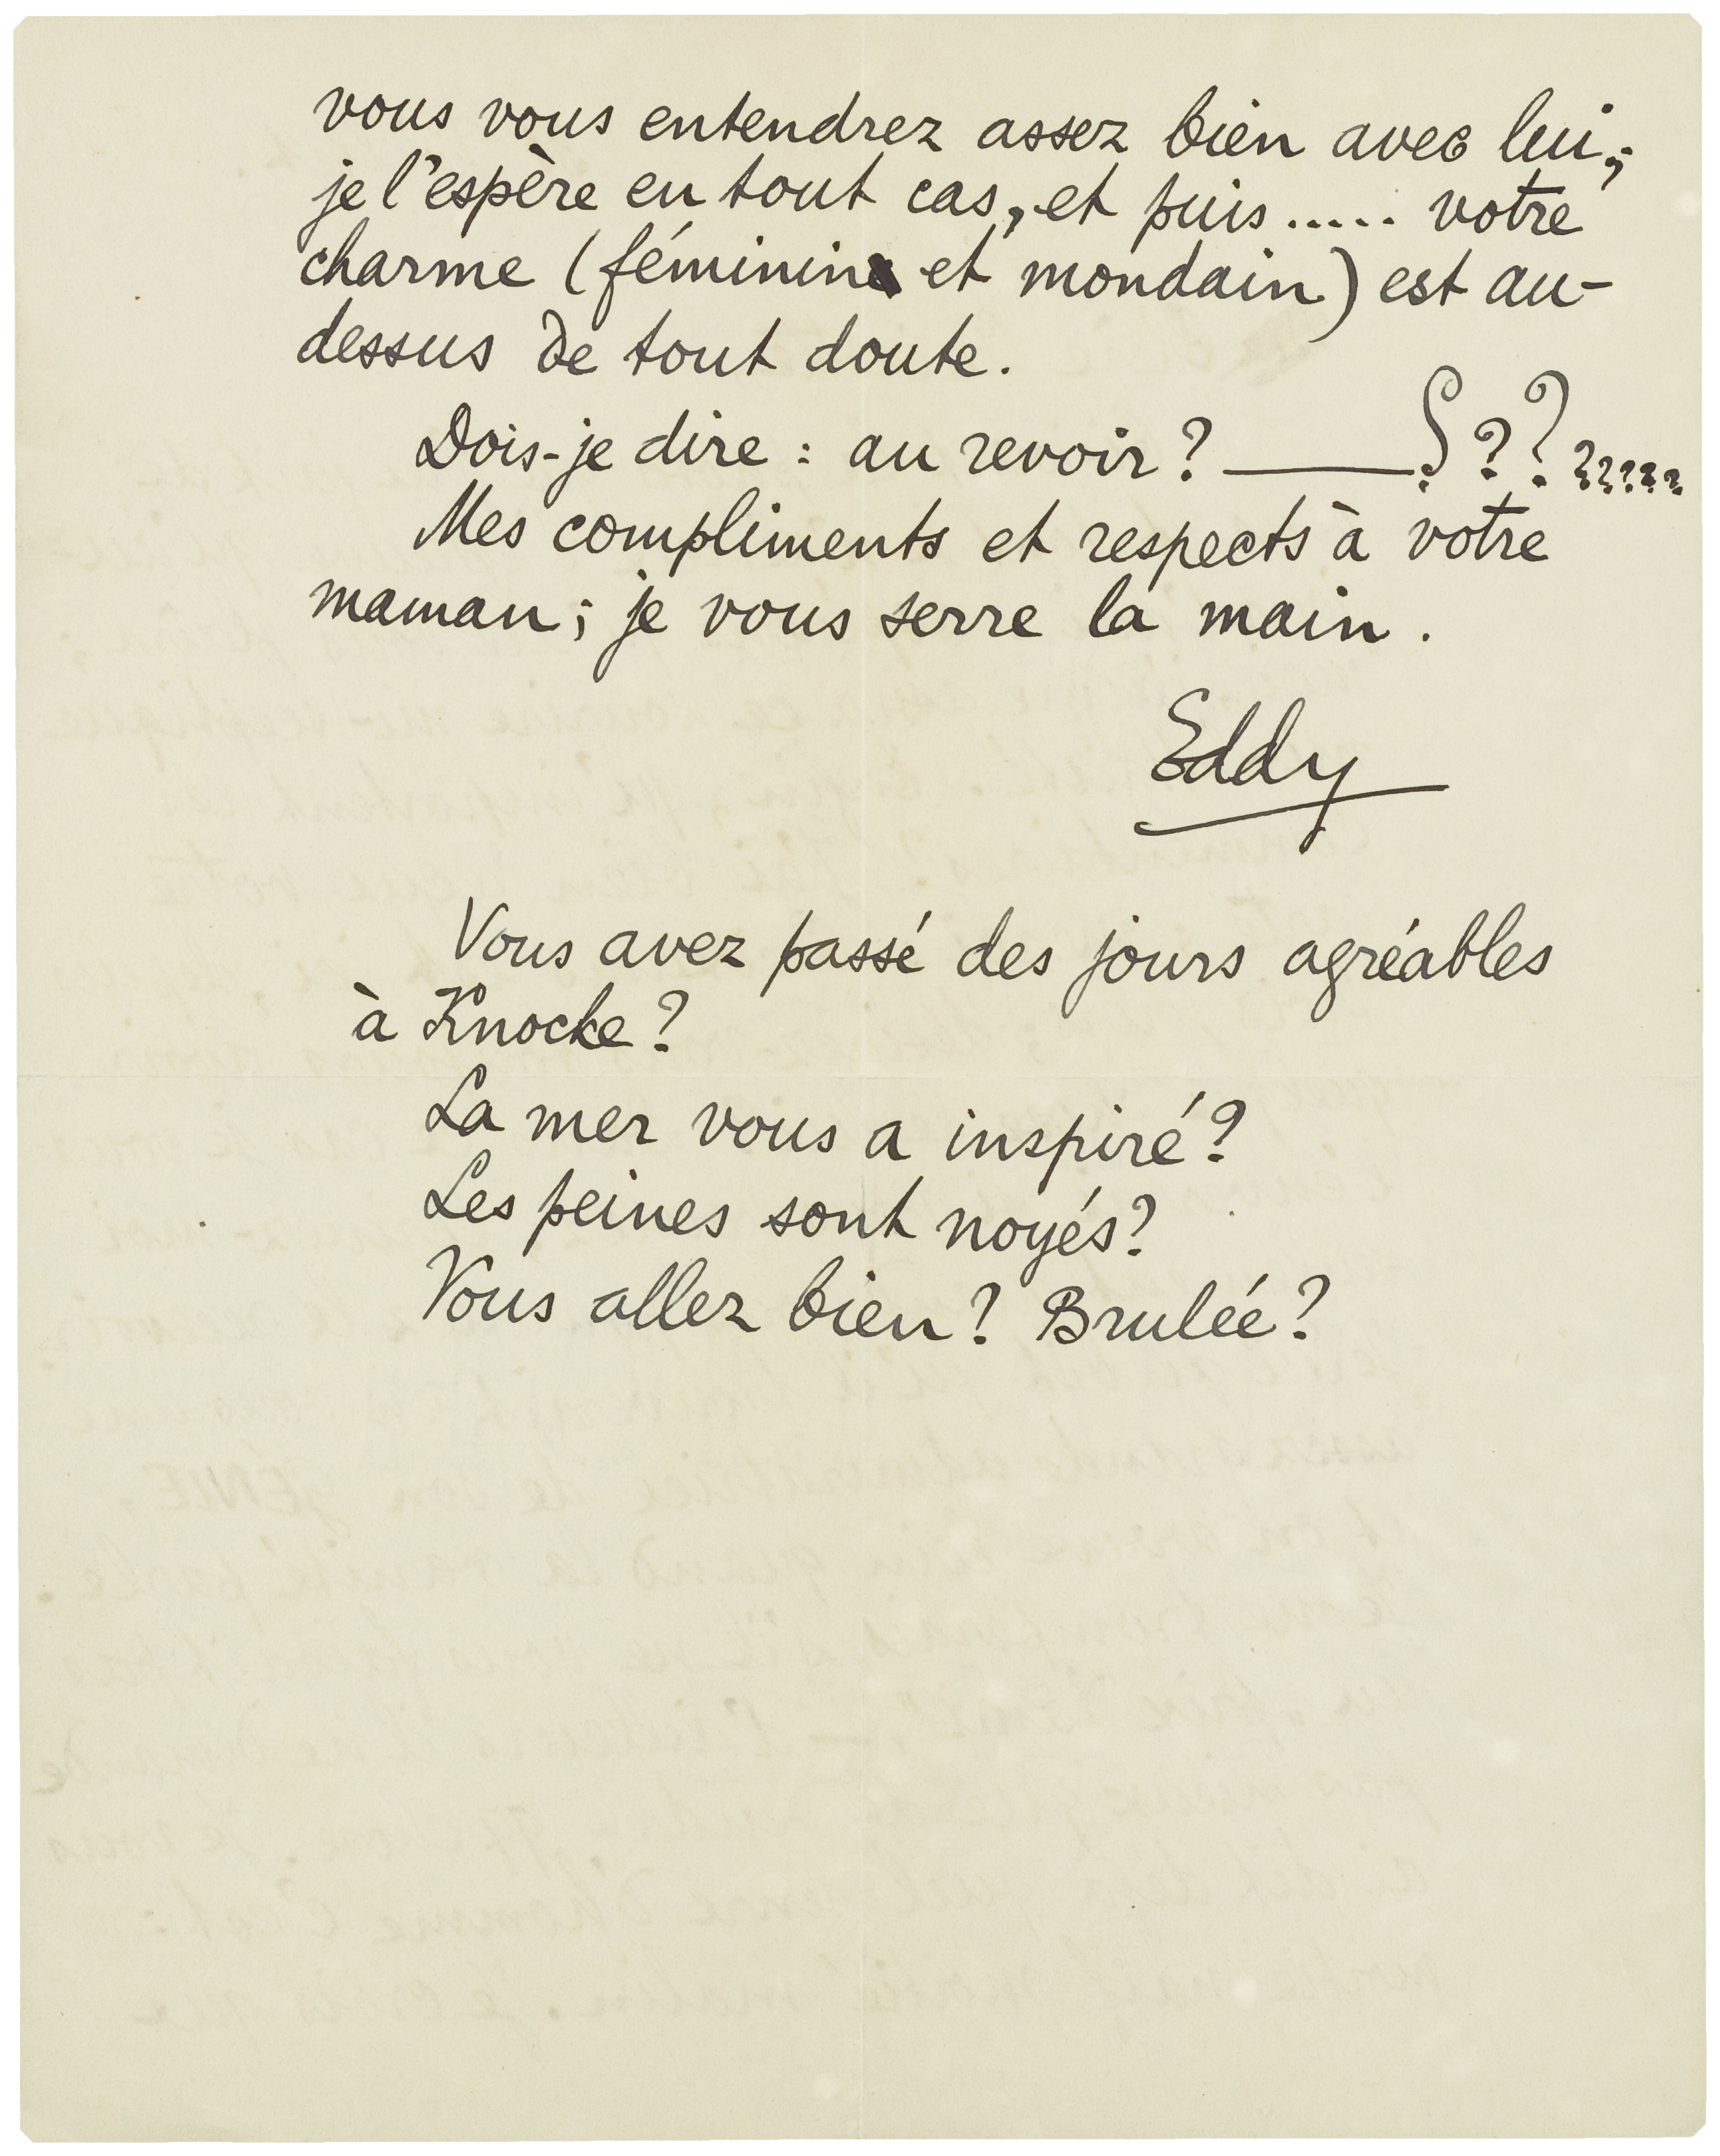 vous vous entendrez assez bien avec lui,
je l'espère en tout cas, et puis ..... votre
charme (féminin et mondain) est au-
dessus de tout doute.
Dois-je dire : au revoir ? ——— ? ? ? ? ? ? ? ?
Mes compliments et respects à votre
maman ; je vous serre la main .
Eddy
Vous avez passé des jours agréables
à Knocke ?
La mer vous a inspiré ?
Les peines sont noyés ?
Vous allez bien ? Brulée ?